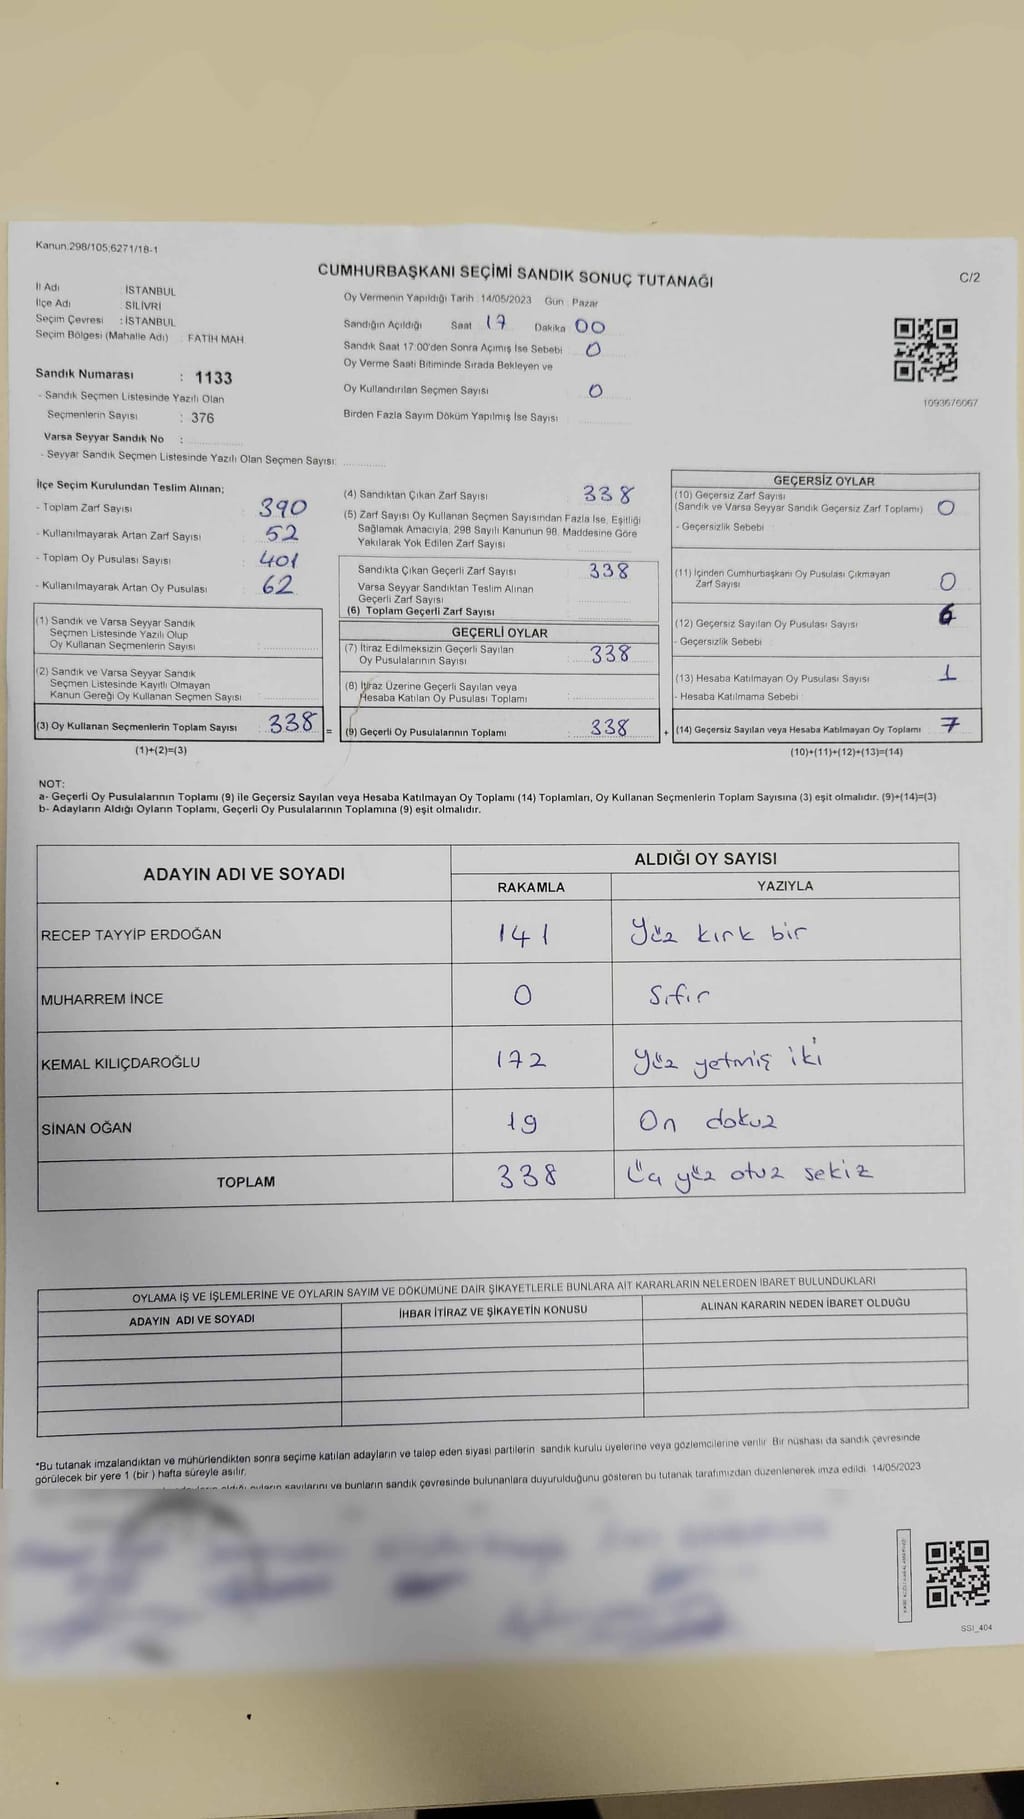 Kanun:298/105;6271/18-1
CUMHURBAŞKANI SEÇİMİ SANDIK SONUÇ TUTANAĞI
C/2
İl Adı : İSTANBUL
İlçe Adı : SİLİVRİ
Seçim Çevresi : İSTANBUL
Seçim Bölgesi (Mahalle Adı) : FATİH MAH
Oy Vermenin Yapıldığı Tarih : 14/05/2023 Gün : Pazar
Sandığın Açıldığı Saat 17 Dakika 00
Sandık Saat 17:00'den Sonra Açımış İse Sebebi 0
Oy Verme Saati Bitiminde Sırada Bekleyen ve
Oy Kullandırılan Seçmen Sayısı 0
Birden Fazla Sayım Döküm Yapılmış İse Sayısı
1093676067
Sandık Numarası : 1133
- Sandık Seçmen Listesinde Yazılı Olan
Seçmenlerin Sayısı : 376
Varsa Seyyar Sandık No :
- Seyyar Sandık Seçmen Listesinde Yazılı Olan Seçmen Sayısı:
İlçe Seçim Kurulundan Teslim Alınan;
- Toplam Zarf Sayısı : 390
- Kullanılmayarak Artan Zarf Sayısı : 52
- Toplam Oy Pusulası Sayısı : 401
- Kullanılmayarak Artan Oy Pusulası : 62
(1) Sandık ve Varsa Seyyar Sandık
Seçmen Listesinde Yazılı Olup
Oy Kullanan Seçmenlerin Sayısı :
(2) Sandık ve Varsa Seyyar Sandık
Seçmen Listesinde Kayıtlı Olmayan
Kanun Gereği Oy Kullanan Seçmen Sayısı :
(3) Oy Kullanan Seçmenlerin Toplam Sayısı : 338
(1)+(2)=(3)
=
(4) Sandıktan Çıkan Zarf Sayısı : 338
(5) Zarf Sayısı Oy Kullanan Seçmen Sayısından Fazla İse, Eşitliği
Sağlamak Amacıyla, 298 Sayılı Kanunun 98. Maddesine Göre
Yakılarak Yok Edilen Zarf Sayısı :
Sandıkta Çıkan Geçerli Zarf Sayısı : 338
Varsa Seyyar Sandıktan Teslim Alınan
Geçerli Zarf Sayısı :
(6) Toplam Geçerli Zarf Sayısı :
GEÇERLİ OYLAR
(7) İtiraz Edilmeksizin Geçerli Sayılan
Oy Pusulalarının Sayısı : 338
(8) İtiraz Üzerine Geçerli Sayılan veya
Hesaba Katılan Oy Pusulası Toplamı :
(9) Geçerli Oy Pusulalarının Toplamı : 338
+
GEÇERSİZ OYLAR
(10) Geçersiz Zarf Sayısı
(Sandık ve Varsa Seyyar Sandık Geçersiz Zarf Toplamı) : 0
- Geçersizlik Sebebi :
(11) İçinden Cumhurbaşkanı Oy Pusulası Çıkmayan
Zarf Sayısı : 0
(12) Geçersiz Sayılan Oy Pusulası Sayısı : 6
- Geçersizlik Sebebi :
(13) Hesaba Katılmayan Oy Pusulası Sayısı : 1
- Hesaba Katılmama Sebebi :
(14) Geçersiz Sayılan veya Hesaba Katılmayan Oy Toplamı : 7
(10)+(11)+(12)+(13)=(14)
NOT:
a- Geçerli Oy Pusulalarının Toplamı (9) ile Geçersiz Sayılan veya Hesaba Katılmayan Oy Toplamı (14) Toplamları, Oy Kullanan Seçmenlerin Toplam Sayısına (3) eşit olmalıdır. (9)+(14)=(3)
b- Adayların Aldığı Oyların Toplamı, Geçerli Oy Pusulalarının Toplamına (9) eşit olmalıdır.
ADAYIN ADI VE SOYADI
ALDIĞI OY SAYISI
RAKAMLA YAZIYLA
RECEP TAYYİP ERDOĞAN 141 Yüz kırk bir
MUHARREM İNCE 0 Sıfır
KEMAL KILIÇDAROĞLU 172 Yüz yetmiş iki
SİNAN OĞAN 19 On dokuz
TOPLAM 338 Üç yüz otuz sekiz
OYLAMA İŞ VE İŞLEMLERİNE VE OYLARIN SAYIM VE DÖKÜMÜNE DAİR ŞİKAYETLERLE BUNLARA AİT KARARLARIN NELERDEN İBARET BULUNDUKLARI
ADAYIN ADI VE SOYADI İHBAR İTİRAZ VE ŞİKAYETİN KONUSU ALINAN KARARIN NEDEN İBARET OLDUĞU
*Bu tutanak imzalandıktan ve mühürlendikten sonra seçime katılan adayların ve talep eden siyasi partilerin sandık kurulu üyelerine veya gözlemcilerine verilir. Bir nüshası da sandık çevresinde
görülecek bir yere 1 (bir ) hafta süreyle asılır.
oyların sayılarını ve bunların sandık çevresinde bulunanlara duyurulduğunu gösteren bu tutanak tarafımızdan düzenlenerek imza edildi. 14/05/2023
SSI_404